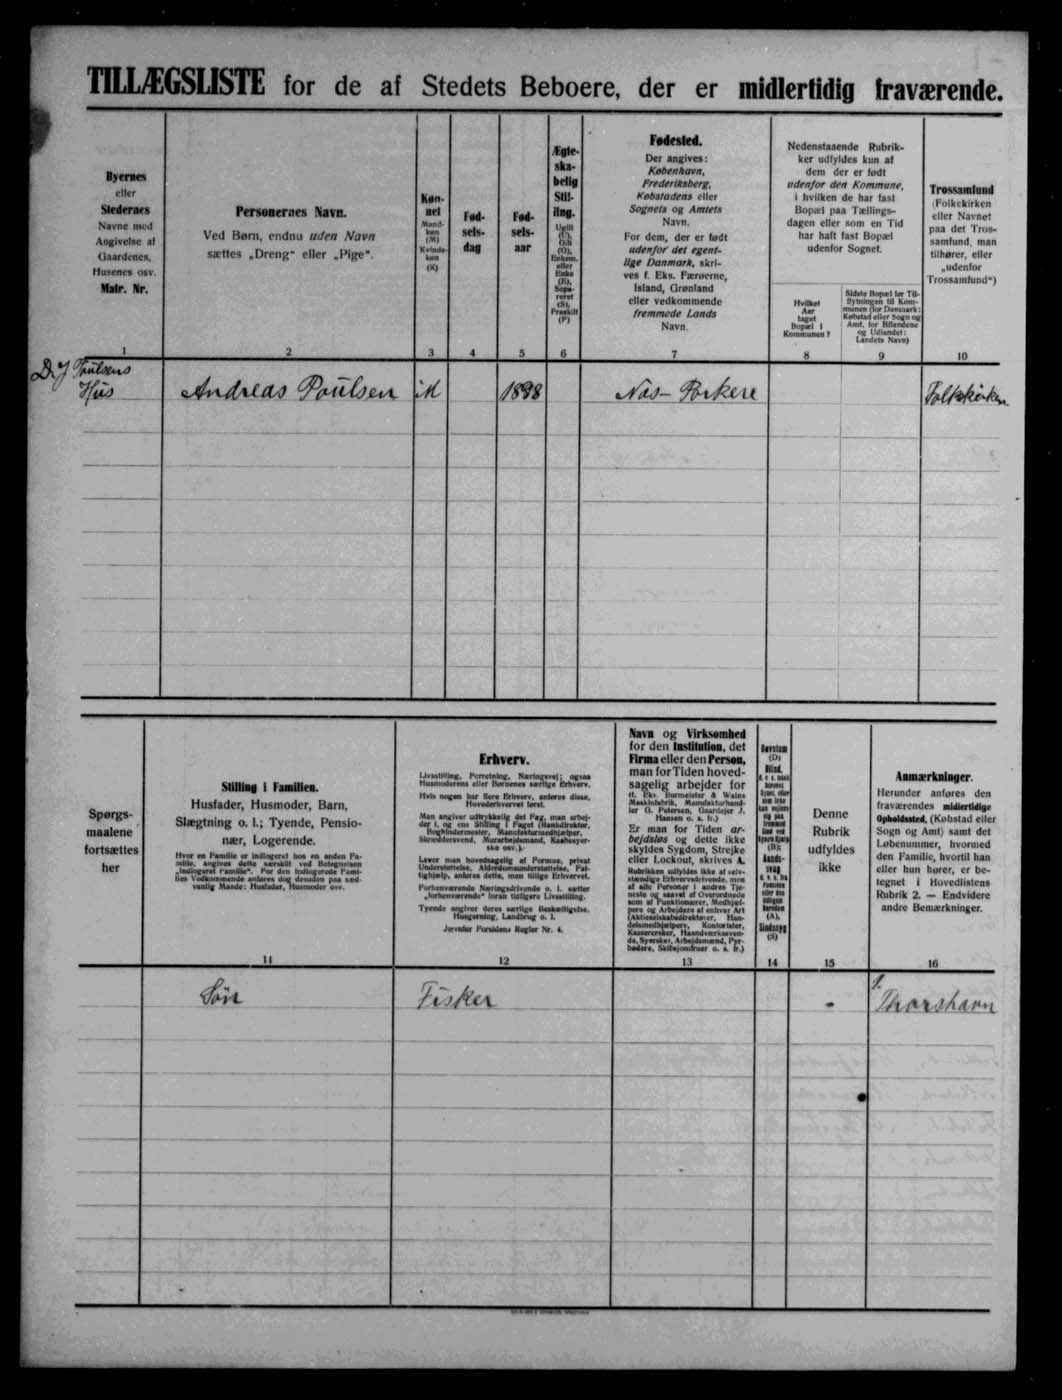 TILLÆGSLISTE for de af Stedets Beboere, der er midlertidig fraværende.
Byernes
eller
Stedernes
Navne med
Angivelse af
Gaardenes,
Husenes osv.
Matr. Nr.
1
Personernes Navn.
Ved Børn, endnu uden Navn
sættes „Dreng“ eller „Pige“.
2
Køn-
net
Mand-
køn
(M)
Kvinde-
køn
(K)
3
Fød-
sels-
dag
4
Fød-
sels-
aar
5
Ægte-
ska-
belig
Stil-
ling.
Ugift
(U),
Gift
(G),
Enkem.
eller
Enke
(E),
Sepa-
reret
(S),
Fraskilt
(F)
6
Fødested.
Der angives:
København,
Frederiksberg,
Købstadens eller
Sognets og Amtets
Navn.
For dem, der er født
udenfor det egent-
lige Danmark, skri-
ves f. Eks. Færøerne,
Island, Grønland
eller vedkommende
fremmede Lands
Navn.
7
Nedenstaaende Rubrik-
ker udfyldes kun af
dem der er født
udenfor den Kommune,
i hvilken de har fast
Bopæl paa Tællings-
dagen eller som en Tid
har haft fast Bopæl
udenfor Sognet.
Hvilket
Aar
taget
Bopæl i
Kommunen?
8
Sidste Bopæl før Til-
flytningen til Kom-
munen (for Danmark:
Købstad eller Sogn og
Amt, for Bilandene
og Udlandet:
Landets Navn)
9
Trossamfund
(Folkekirken
eller Navnet
paa det Tros-
samfund, man
tilhører, eller
„udenfor
Trossamfund“)
10
D. J Poulsens
Hus Andreas Poulsen M 1898 Nøs- Porkere Folkekirken
Spørgs-
maalene
fortsættes
her
Stilling i Familien.
Husfader, Husmoder, Barn,
Slægtning o. l.; Tyende, Pensio-
nær, Logerende.
Hvor en Familie er indlogeret hos en anden Fa-
milie, angives dette særskilt ved Betegnelsen
„indlogeret Familie“. For den indlogerede Fami-
lies Vedkommende anføres dog desuden paa sæd-
vanlig Maade: Husfader, Husmoder osv.
11
Erhverv.
Livsstilling, Forretning, Næringsvej; ogsaa
Husmoderens eller Børnenes særlige Erhverv.
Hvis nogen har flere Erhverv, anføres disse,
Hovederhvervet først.
Man angiver udtrykkelig det Fag, man arbej-
der i, og ens Stilling i Faget (Bankdirektør,
Bogbindermester, Manufakturmedhjælper,
Skræddersvend, Murarbejdsmand, Kassebesyer-
ske osv.).
Lever man hovedsagelig af Formue, privat
Understøttelse, Alderdomsunderstøttelse, Fat-
tighjælp, anføres dette, men tillige Erhvervet.
Forhenværende Næringsdrivende o. l. sætter
„forhenværende“ foran tidligere Livsstilling.
Tyende angiver deres særlige Beskæftigelse,
Husgerning, Landbrug o. l.
Jævnfør Forsidens Regler Nr. 4.
12
Navn og Virksomhed
for den Institution, det
Firma eller den Person,
man for Tiden hoved-
sagelig arbejder for
(f. Eks. Burmeister & Wains
Maskinfabrik, Manufakturhand-
ler G. Petersen, Gaardejer J.
Hansen o. s. fr.)
Er man for Tiden ar-
bejdsløs og dette ikke
skyldes Sygdom, Strejke
eller Lockout, skrives A.
Rubrikken udfyldes ikke af selv-
stændige Erhvervsdrivende, men
af alle Personer i andres Tje-
neste og saavel af Overordnede
som af Funktionærer, Medhjæl-
pere og Arbejdere af enhver Art
(Aktieselskabsdirektører, Han-
delsmedhjælpere, Kontorister,
Kassererske, Haandværkssven-
de, Syersker, Arbejdsmænd, Fyr-
bødere, Skibsjomfruer o. s. fr.)
13
Døvstum
(D)
Blind,
(B);
Aands-
svag
(A),
Sindssyg
(S)
14
Denne
Rubrik
udfyldes
ikke
15
Anmærkninger.
Herunder anføres den
fraværendes midlertidige
Opholdssted, (Købstad eller
Sogn og Amt) samt det
Løbenummer, hvormed
den Familie, hvortil han
eller hun hører, er be-
tegnet i Hovedlistens
Rubrik 2. — Endvidere
andre Bemærkninger.
16
Søn Fisker - 1. Thorshavn